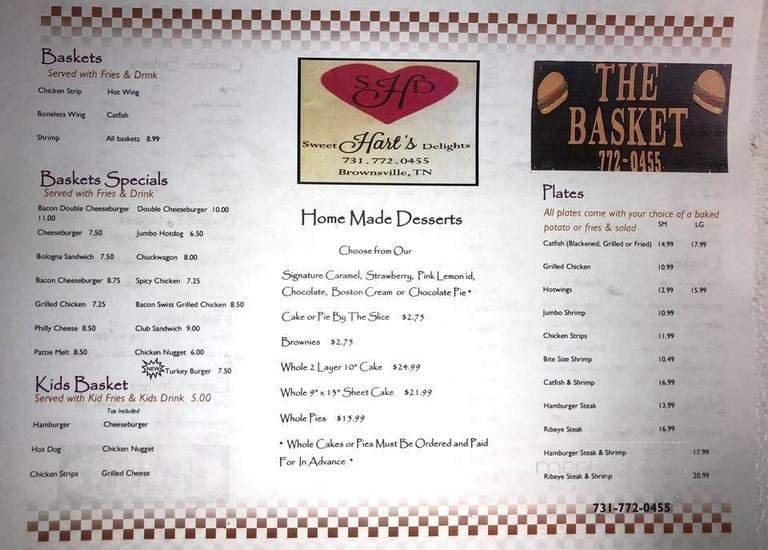 Baskets
Served with Fries & Drink
Chicken Strip Hot Wing
Boneless Wing Catfish
Shrimp All baskets 8.99
Baskets Specials
Served with Fries & Drink
Bacon Double Cheeseburger Double Cheeseburger 10.00
11.00
Cheeseburger 7.50 Jumbo Hotdog 6.50
Bologna Sandwich 7.50 Chuckwagon 8.00
Bacon Cheeseburger 8.75 Spicy Chicken 7.25
Grilled Chicken 7.25 Bacon Swiss Grilled Chicken 8.50
Philly Cheese 8.50 Club Sandwich 9.00
Pattie Melt 8.50 Chicken Nugget 6.00
NEW Turkey Burger 7.50
Kids Basket
Served with Kid Fries & Kids Drink 5.00
Tax Included
Hamburger Cheeseburger
Hot Dog Chicken Nugget
Chicken Strips Grilled Cheese
SHD
Sweet Hart's Delights
731.772.0455
Brownsville, TN
Home Made Desserts
Choose from Our
Signature Caramel, Strawberry, Pink Lemon id,
Chocolate, Boston Cream or Chocolate Pie *
Cake or Pie By The Slice $2.75
Brownies $2.75
Whole 2 Layer 10" Cake $24.99
Whole 9" x 13" Sheet Cake $21.99
Whole Pies $15.99
* Whole Cakes or Pies Must Be Ordered and Paid
For In Advance *
THE
BASKET
772-0455
Plates
All plates come with your choice of a baked
potato or fries & salad SM LG
Catfish (Blackened, Grilled or Fried) 14.99 17.99
Grilled Chicken 10.99
Hotwings 12.99 15.99
Jumbo Shrimp 10.99
Chicken Strips 11.99
Bite Size Shrimp 10.49
Catfish & Shrimp 16.99
Hamburger Steak 13.99
Ribeye Steak 16.99
Hamburger Steak & Shrimp 17.99
Ribeye Steak & Shrimp 20.99
731-772-0455